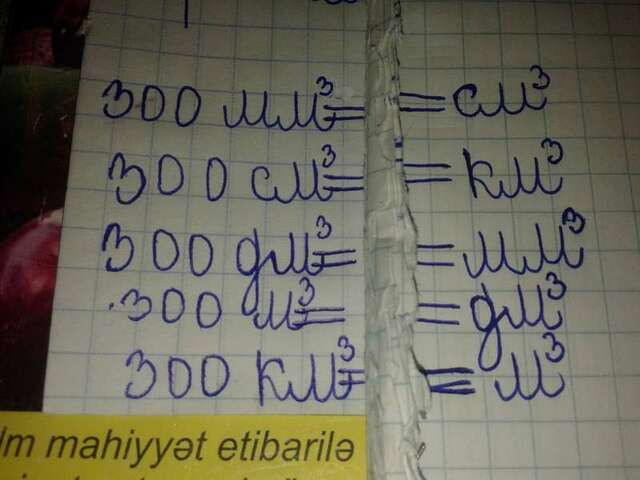 300 мм³= =см³
300 см³= =км³
300 дм³= =мм³
300 м³= =дм³
300 км³= =м³
lm mahiyyət etibarilə